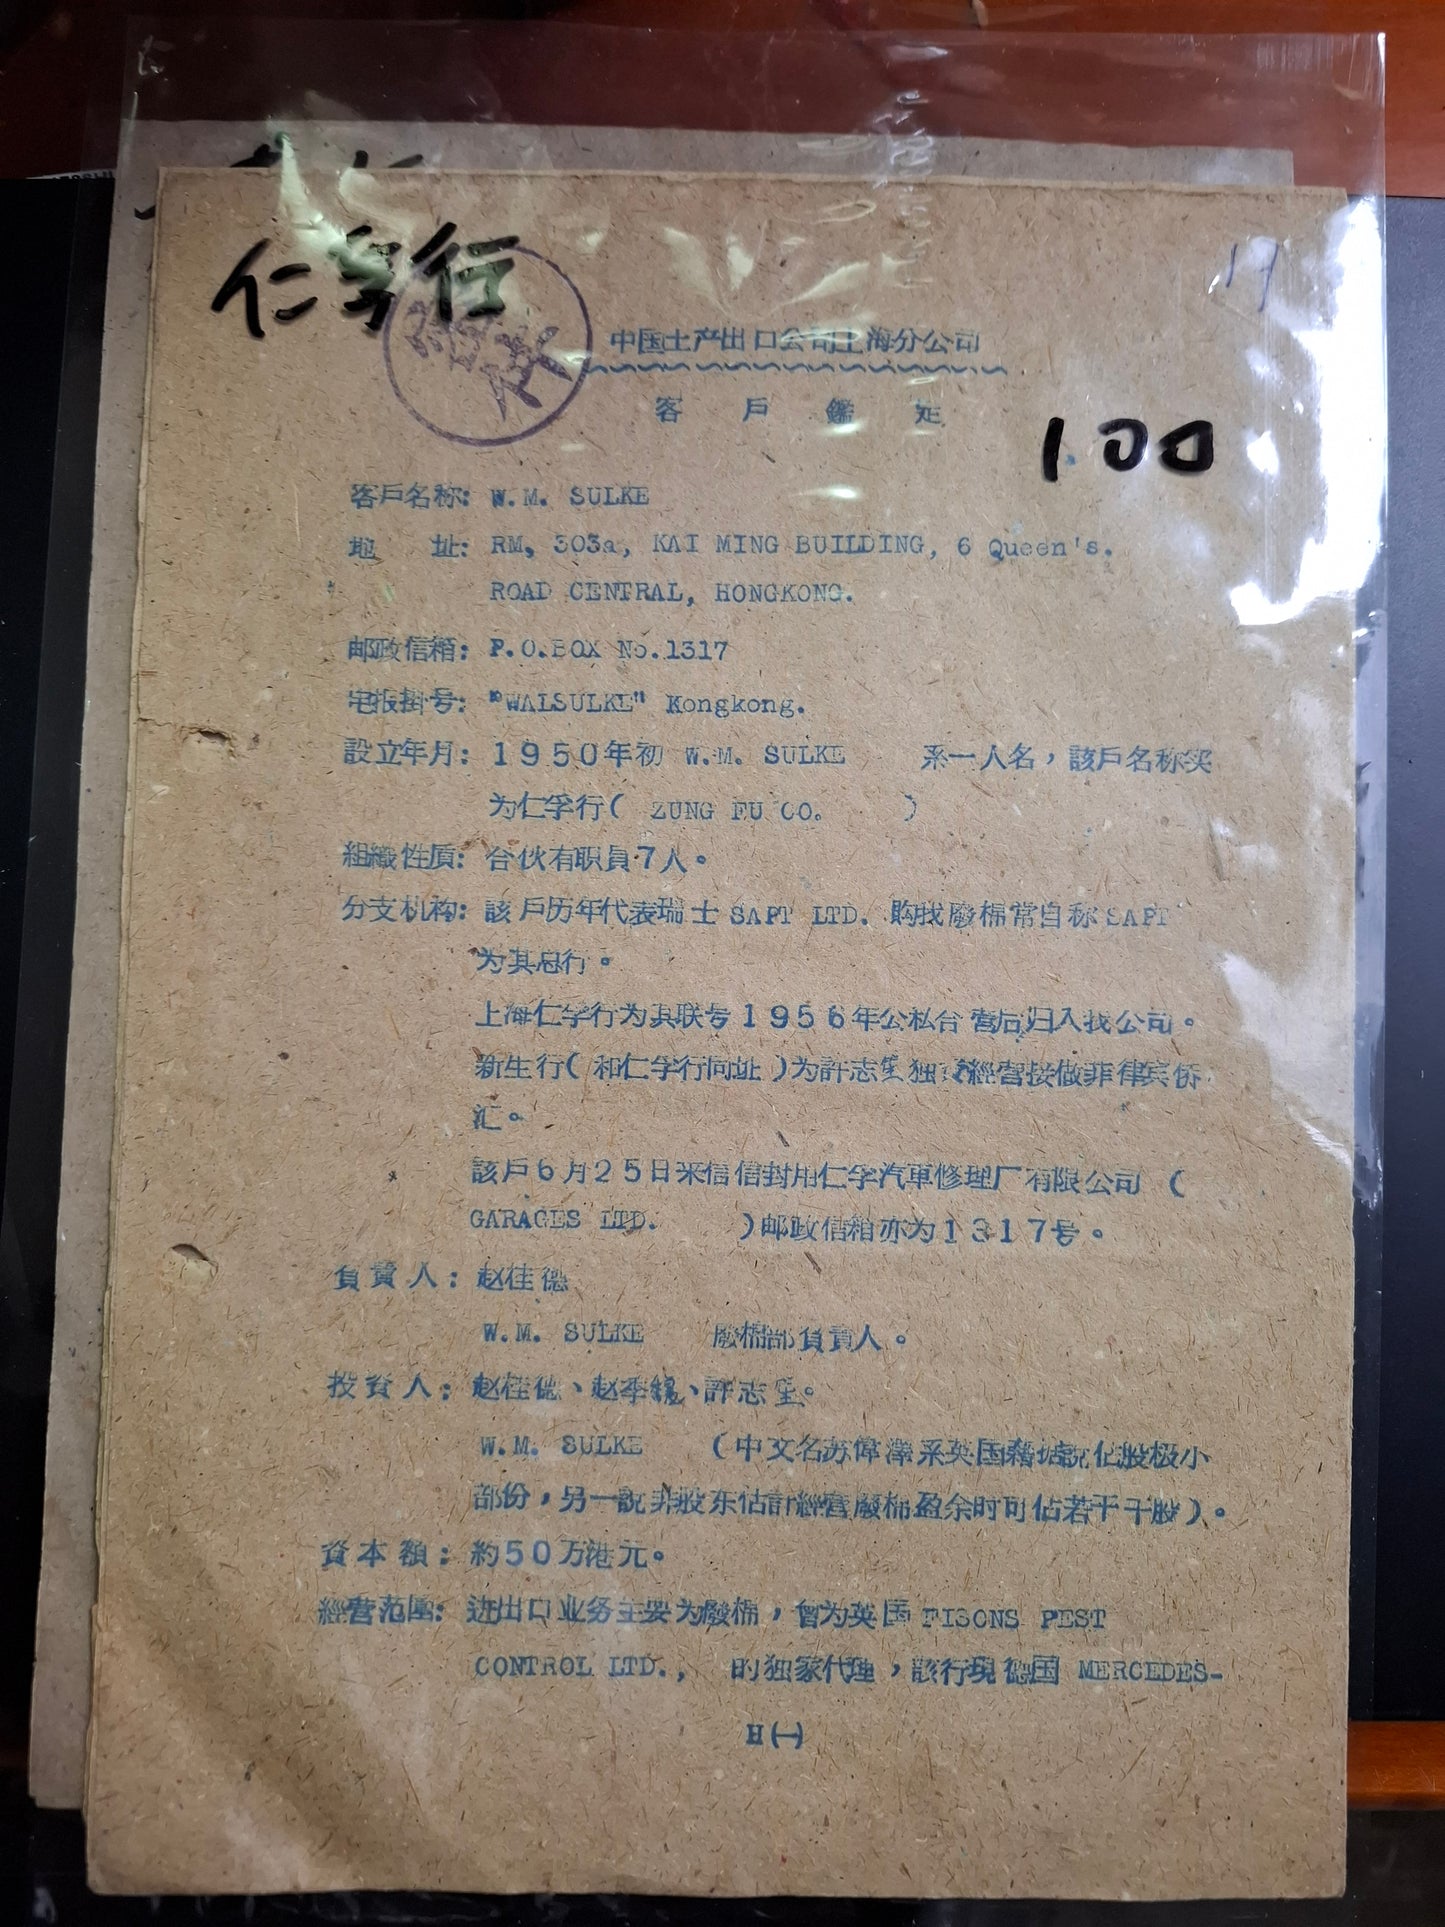 仁孚行
17
中国土产出口公司上海分公司
客戶鑑定
100
客戶名称: W.M. SULKE
地址: RM, 303a, KAI MING BUILDING, 6 Queen's.
ROAD CENTRAL, HONGKONG.
邮政信箱: P.O.BOX No.1317
电报掛号: "WALSULKE" Kongkong.
設立年月: 1950年初 W.M. SULKE 系一人名，該戶名称实
为仁孚行( ZUNG FU CO. )
組織性质: 合伙有职員7人。
分支机构: 該戶历年代表瑞士 SAPT LTD. 购我廢棉常自称 SAPT
为其总行。
上海仁孚行为其联号1956年公私合营后归入我公司。
新生行(和仁孚行同址)为許志 独 經营接做菲律宾侨
汇。
該戶6月25日来信信封用仁孚汽車修理厂有限公司(
GARAGES LTD. )邮政信箱亦为1317号。
負責人: 赵桂德
W.M. SULKE 廢棉部負責人。
投資人: 赵桂德、赵季 、許志 。
W.M. SULKE (中文名苏偉澤系英国籍据說佔股极小
部份，另一說非股东估計經营廢棉盈余时可佔若干干股)。
資本額: 約50万港元。
經营范圍: 进出口业务主要为廢棉，曾为英国 FISONS PEST
CONTROL LTD., 的独家代理，該行現德国 MERCEDES-
H(一)